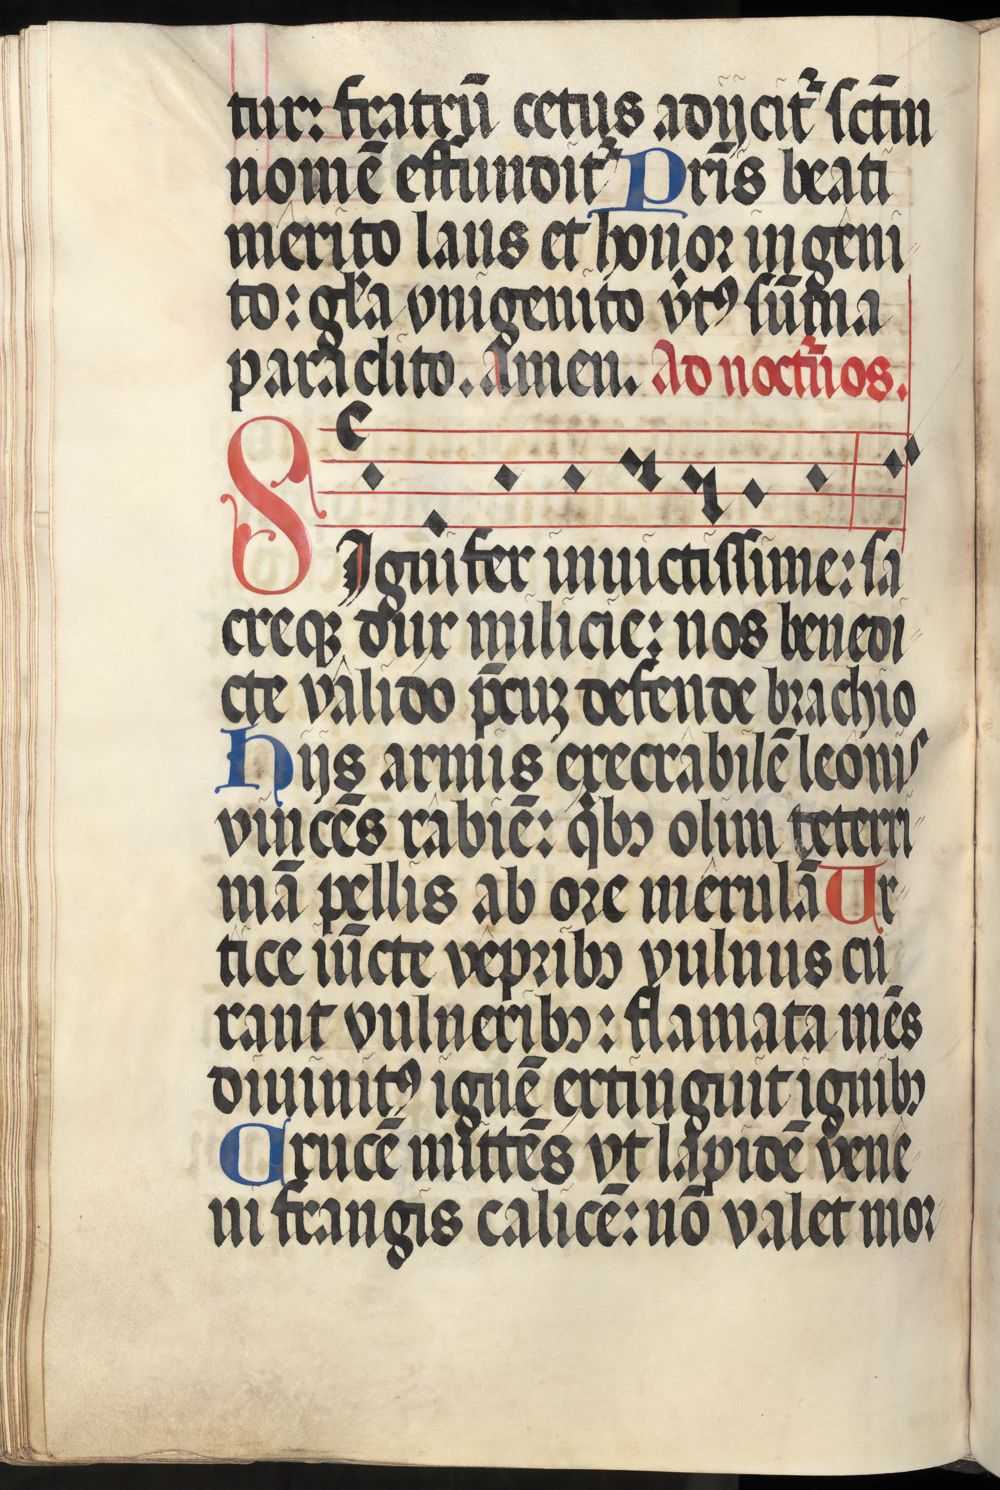 tur: fratrū cetus adijcit᷑ sctm̄
nomē effundit᷑ Pr̄is beati
merito laus et honor ingeni
to: gl̄a vnigenito vīrtꝰ sūma
paraclito. Amen. Ad noctūnos.
SIgnifer inuictissime: sa
creqꝫ dux milicie: nos benedi
cte valido p̄cuꝫ defende brachio
Hijs armis execrabilē leonis
vincēs rabiē: qͥbꝫ olim teterri
mā pellis ab ore merulā Ur
tice iūcte vepribꝫ vulnus cu
rant vulneribꝫ: flamata mēs
diuinitꝰ ignē extinguit ignibꝫ
Crucē mittēs vt lapidē vene
ni frangis calicē: nō valet mor